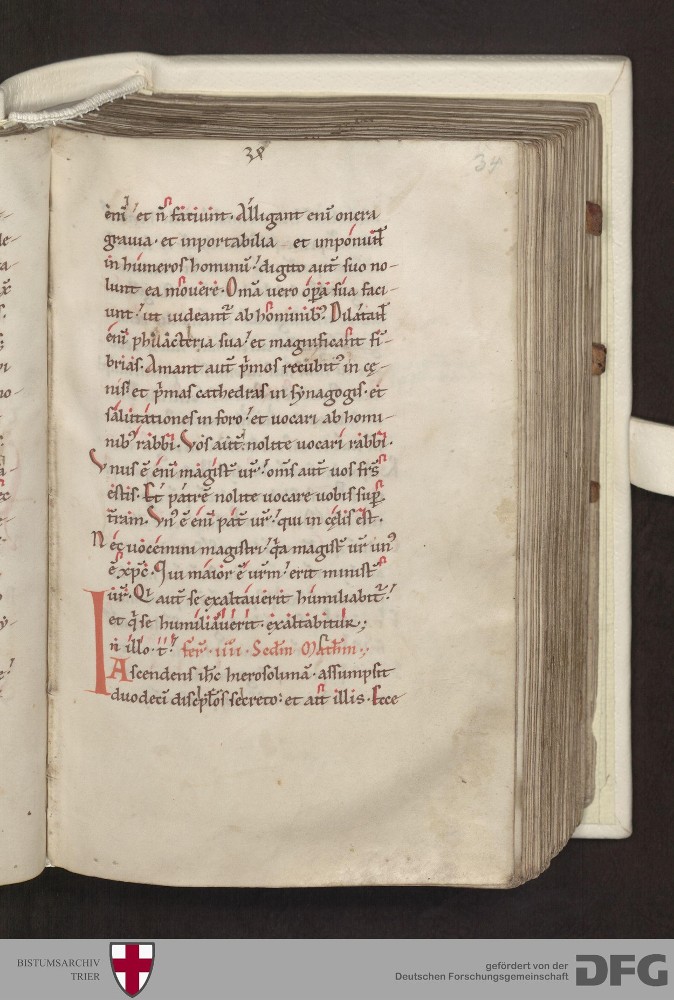 38
34
eni͛ et n̄ faciunt. Alligant eni onera
grauia. et inportabilia et imponūt
in humeros hominū. digito aut̄ suo no-
lunt ea mouere. Om̄a uero opa sua faci-
unt. ut uideant᷑ ab hominib᷒. Dilatāt
eni philacteria sua. et magnificant fī-
brias. Amant aut̄ p̄mos recubit᷒ in cę-
nis. et p̄mas cathedras in synagogis. et
salutationes in foro. et uocari ab homi-
nib᷒ rabbi. Vos aut̄ nolite uocari rabbi.
Vnus ē eni magist̄ ur̄. om̄s aut̄ uos fr̄s
estis. Et patrē nolite uocare uobis sup̄
t̄ram. Vn᷒ ē eni pat̄ ur̄. qui in cęlis est.
Nec uocemini magistri. q̄a magist̄ ur̄ un᷒
ē xp̄c. Qui maior ē ur̄m. erit minist̄
ur̄. Qi aut̄ se exaltauerit humiliabit᷑.
et q̄ se humiliauerit. exaltabitur;
In illo t̄. fer̄. iiii. Sc̄dm Math̄m.
Ascendens ih̄c hierosolimā. assumpsit
duodeci discipl̄os secreto. et ait illis. Ecce
BISTUMSARCHIV
TRIER
gefördert von der
Deutschen Forschungsgemeinschaft
DFG